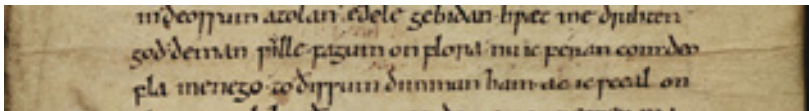 in ðeossum atolan· eðele gebidan· hƿæt me drihten
god deman ƿille· fagum on flora· nu ic feran com deo
fla menego· to dissum dimman ham· ac ic sceal on